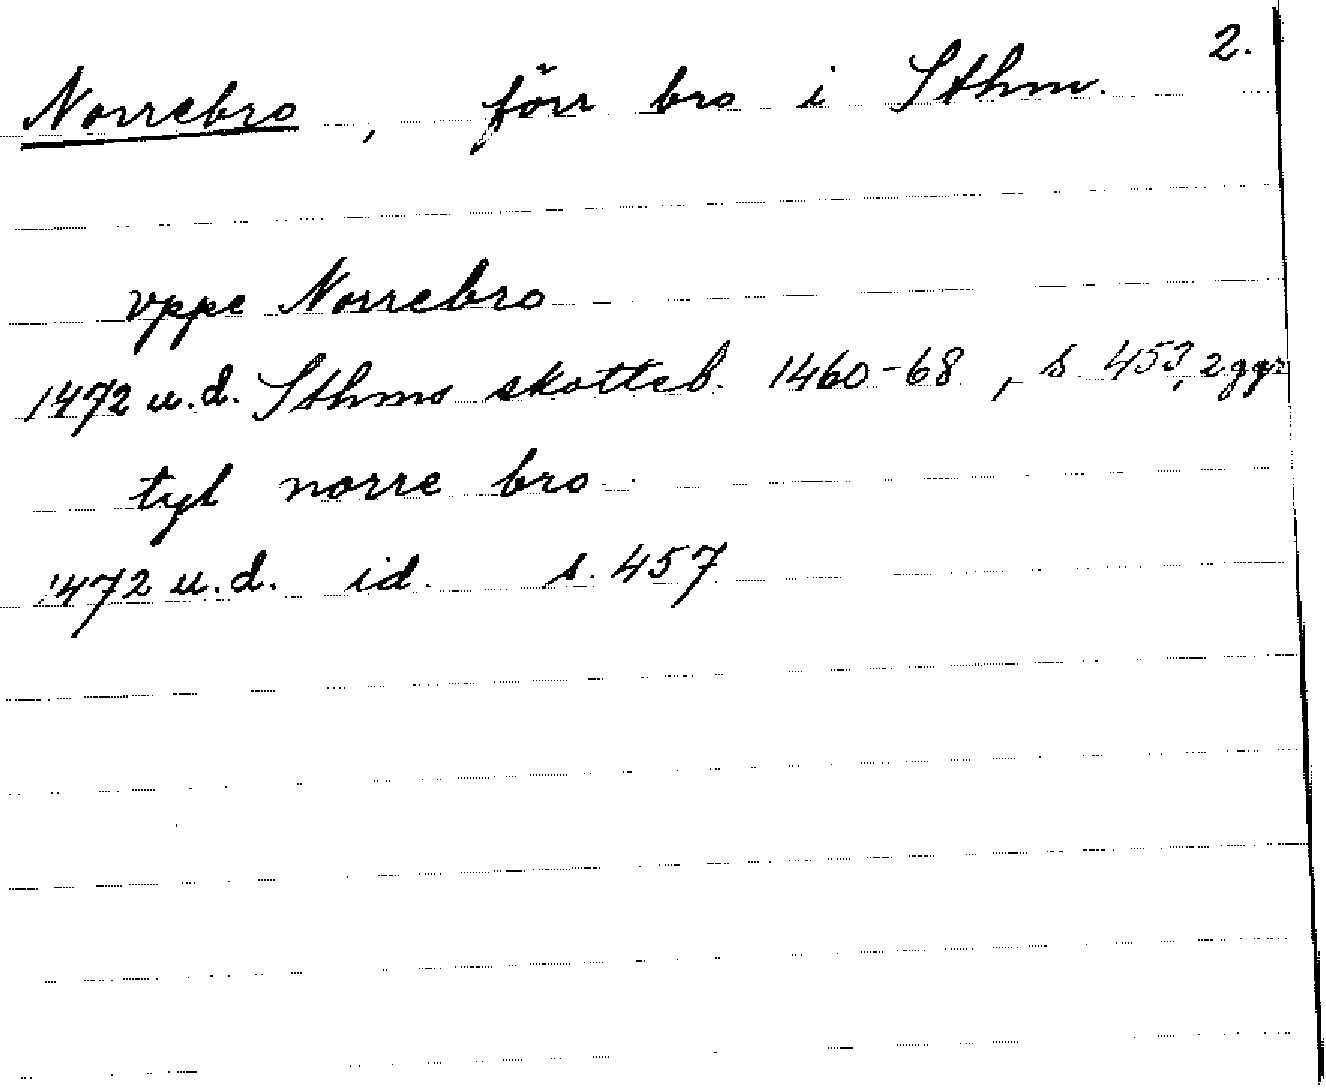 2.
Norrebro, förr bro i Sthm.
vppe Norrebro
1472 u.d. Sthms skotteb. 1460-68, s 453, 2 ggr
tyl norre bro
1472 u.d. id. s. 457